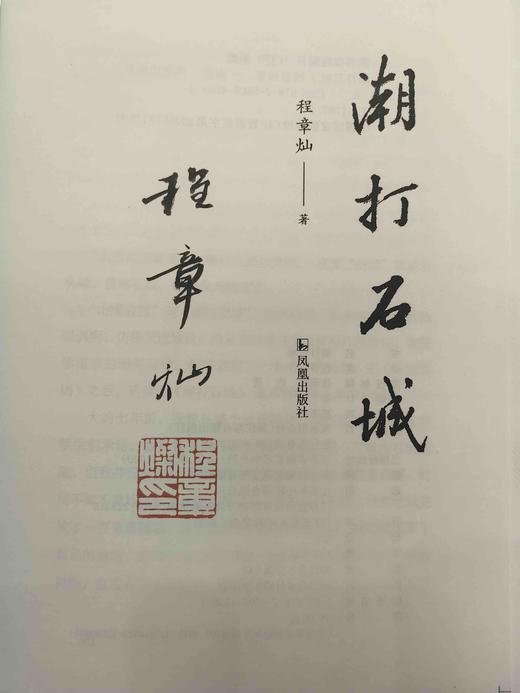 潮打石城
程章灿——著
凤凰出版社
程章灿
程章燦印